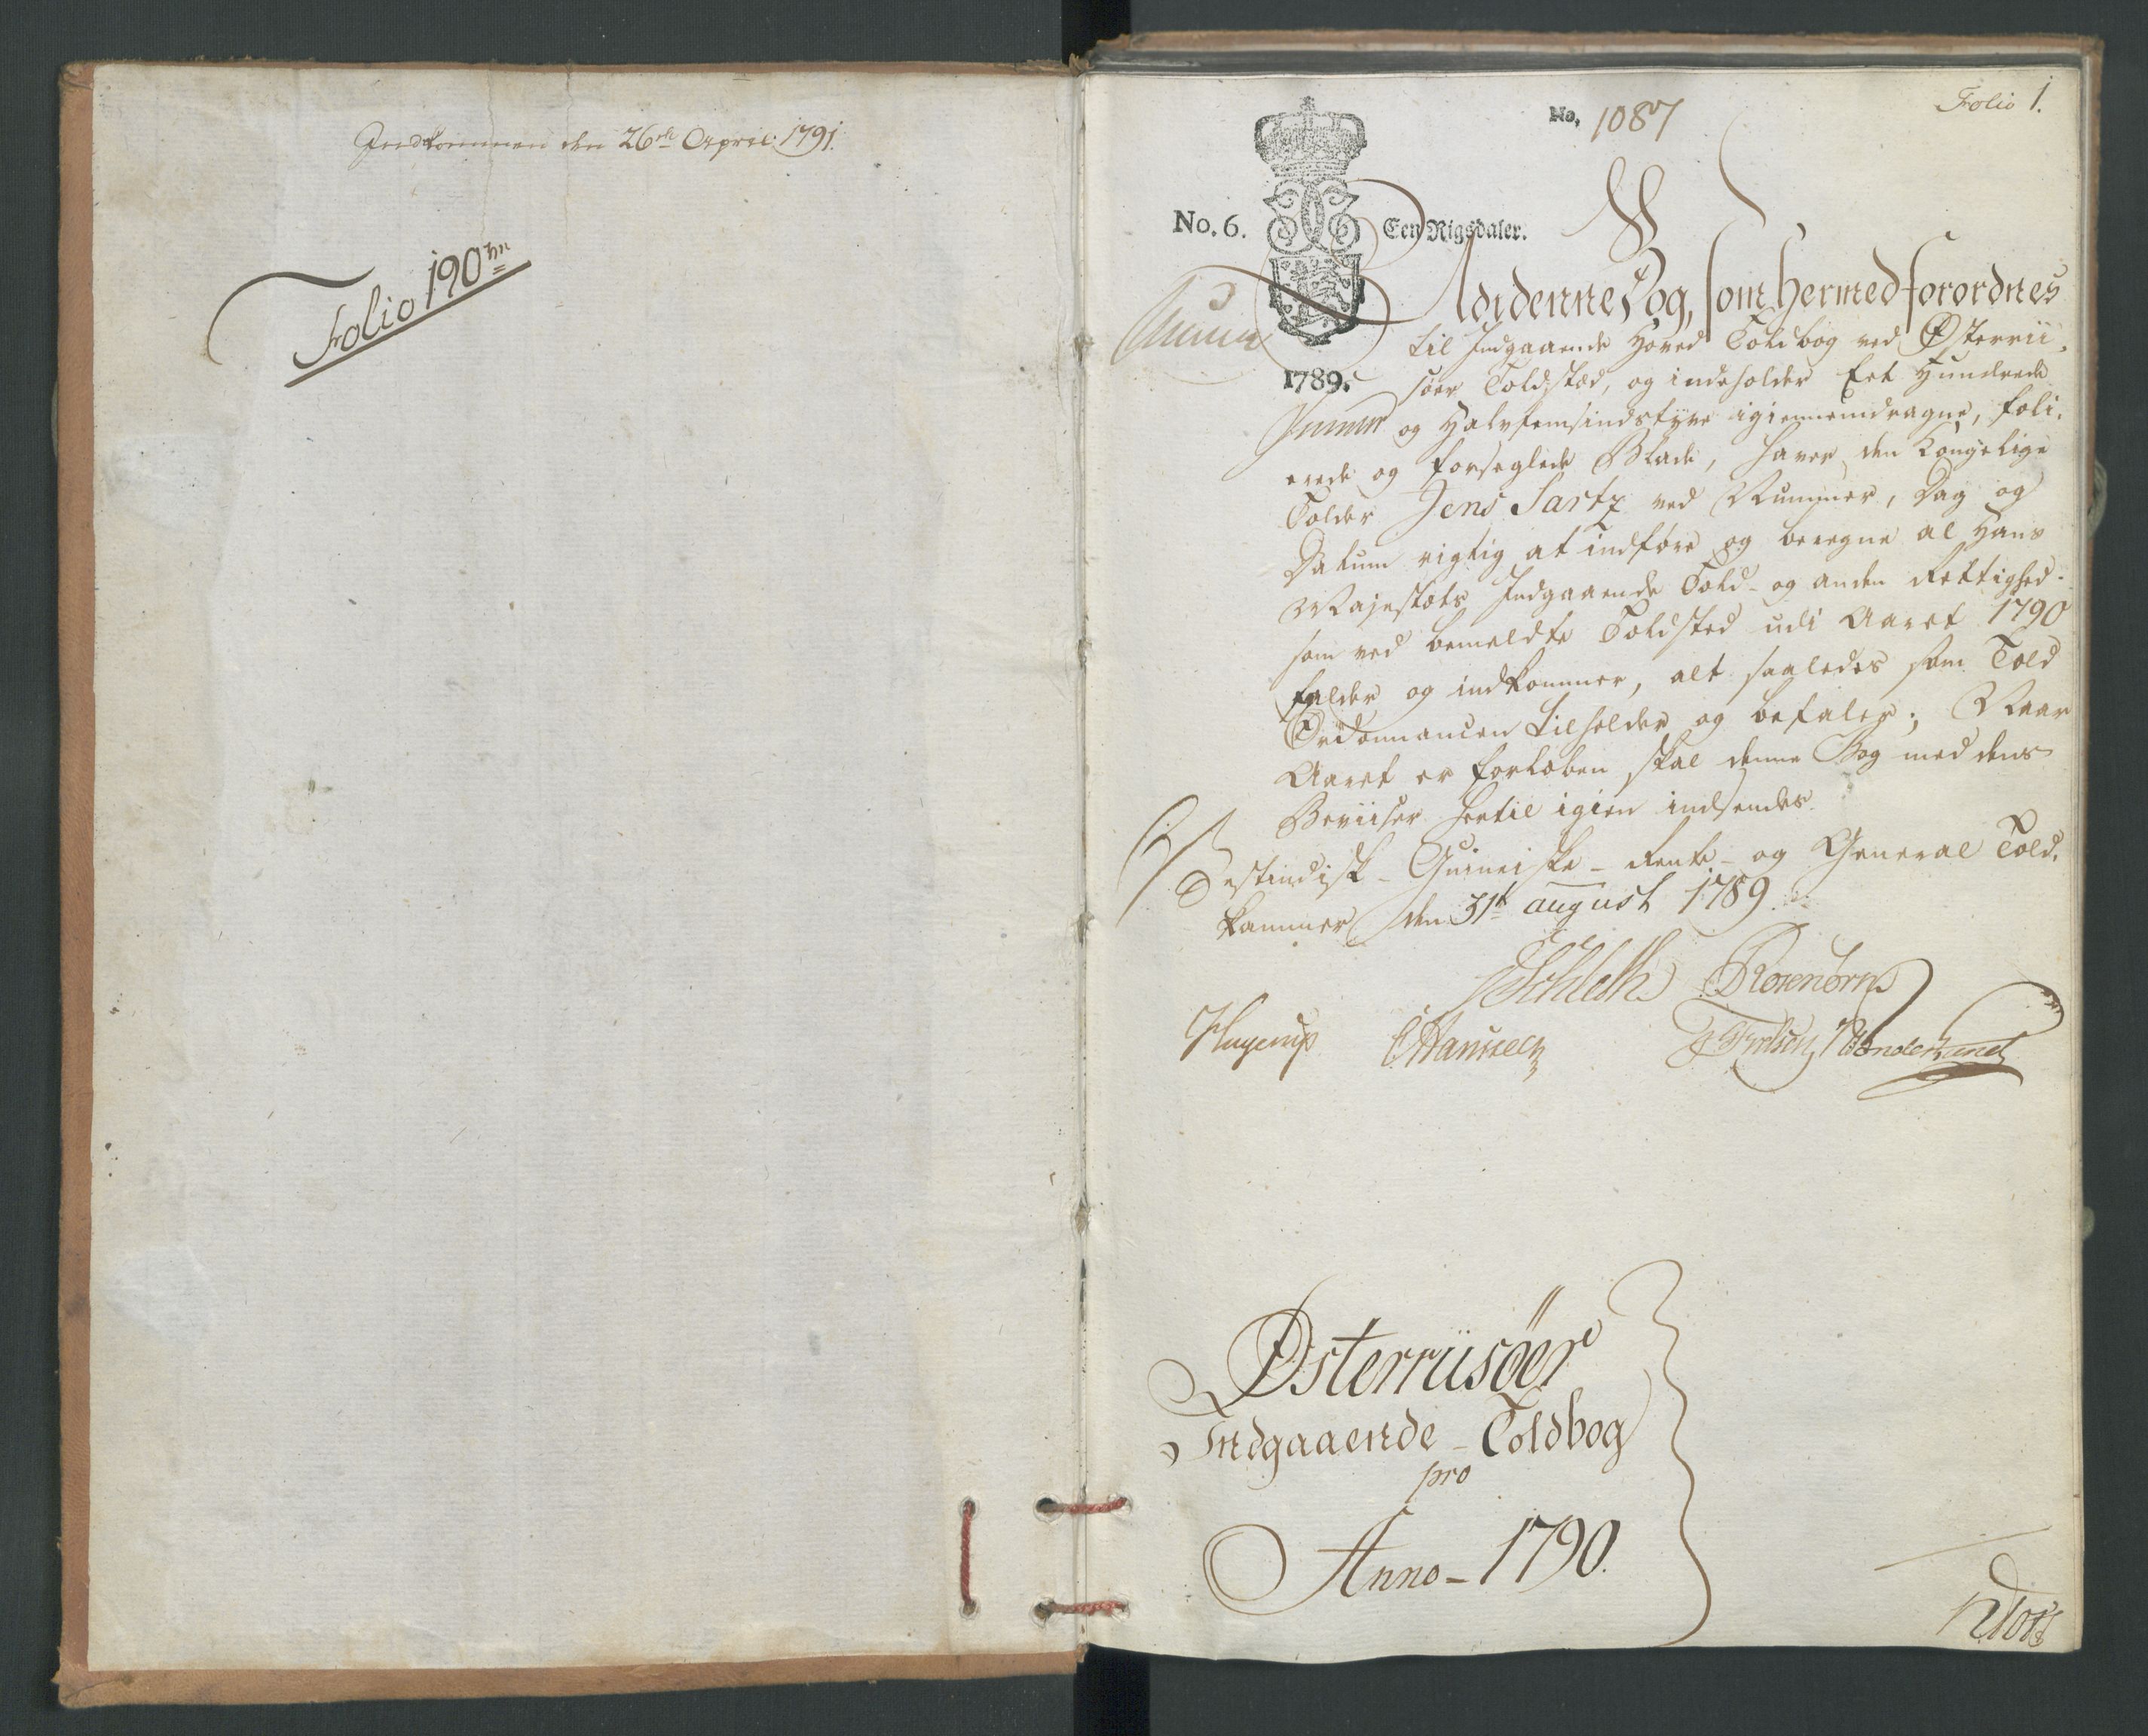 Indkommen den 26de April 1791.
Folio 190
Folio 1.
No. 1087
No. 6.
Een Rigsdaler.
1789.
Udi denne Bog, som hermed forordnes
til Indgaaende Hoved Toldbog ved Østerrii-
söer Toldsted, og indeholder Eet Hundrede
og Halvfemsindstyve igiennemdragne, foli-
erede og forseglede Blade, haver den Kongelige
Tolder Jens Sartz ved Nummer, Dag og
Datum rigtig at indføre og beregne al Hans
Majestæts Indgaaende Told- og anden Rettighed
som ved bemeldte Toldsted udi Aaret 1790
falder og indkommer, alt saaledes som Told
Ordonnancen tilholder og befaler; Naar
Aaret er forløben skal denne Bog med dens
Beviiser hertil igien indsendes.
Vestindisk- Guineiske- Rente- og General Told-
kammer den 31t august 1789.
Rosenörn
CHansen
Østerriisöer
Indgaaende - Toldbog
pro
Anno - 1790.